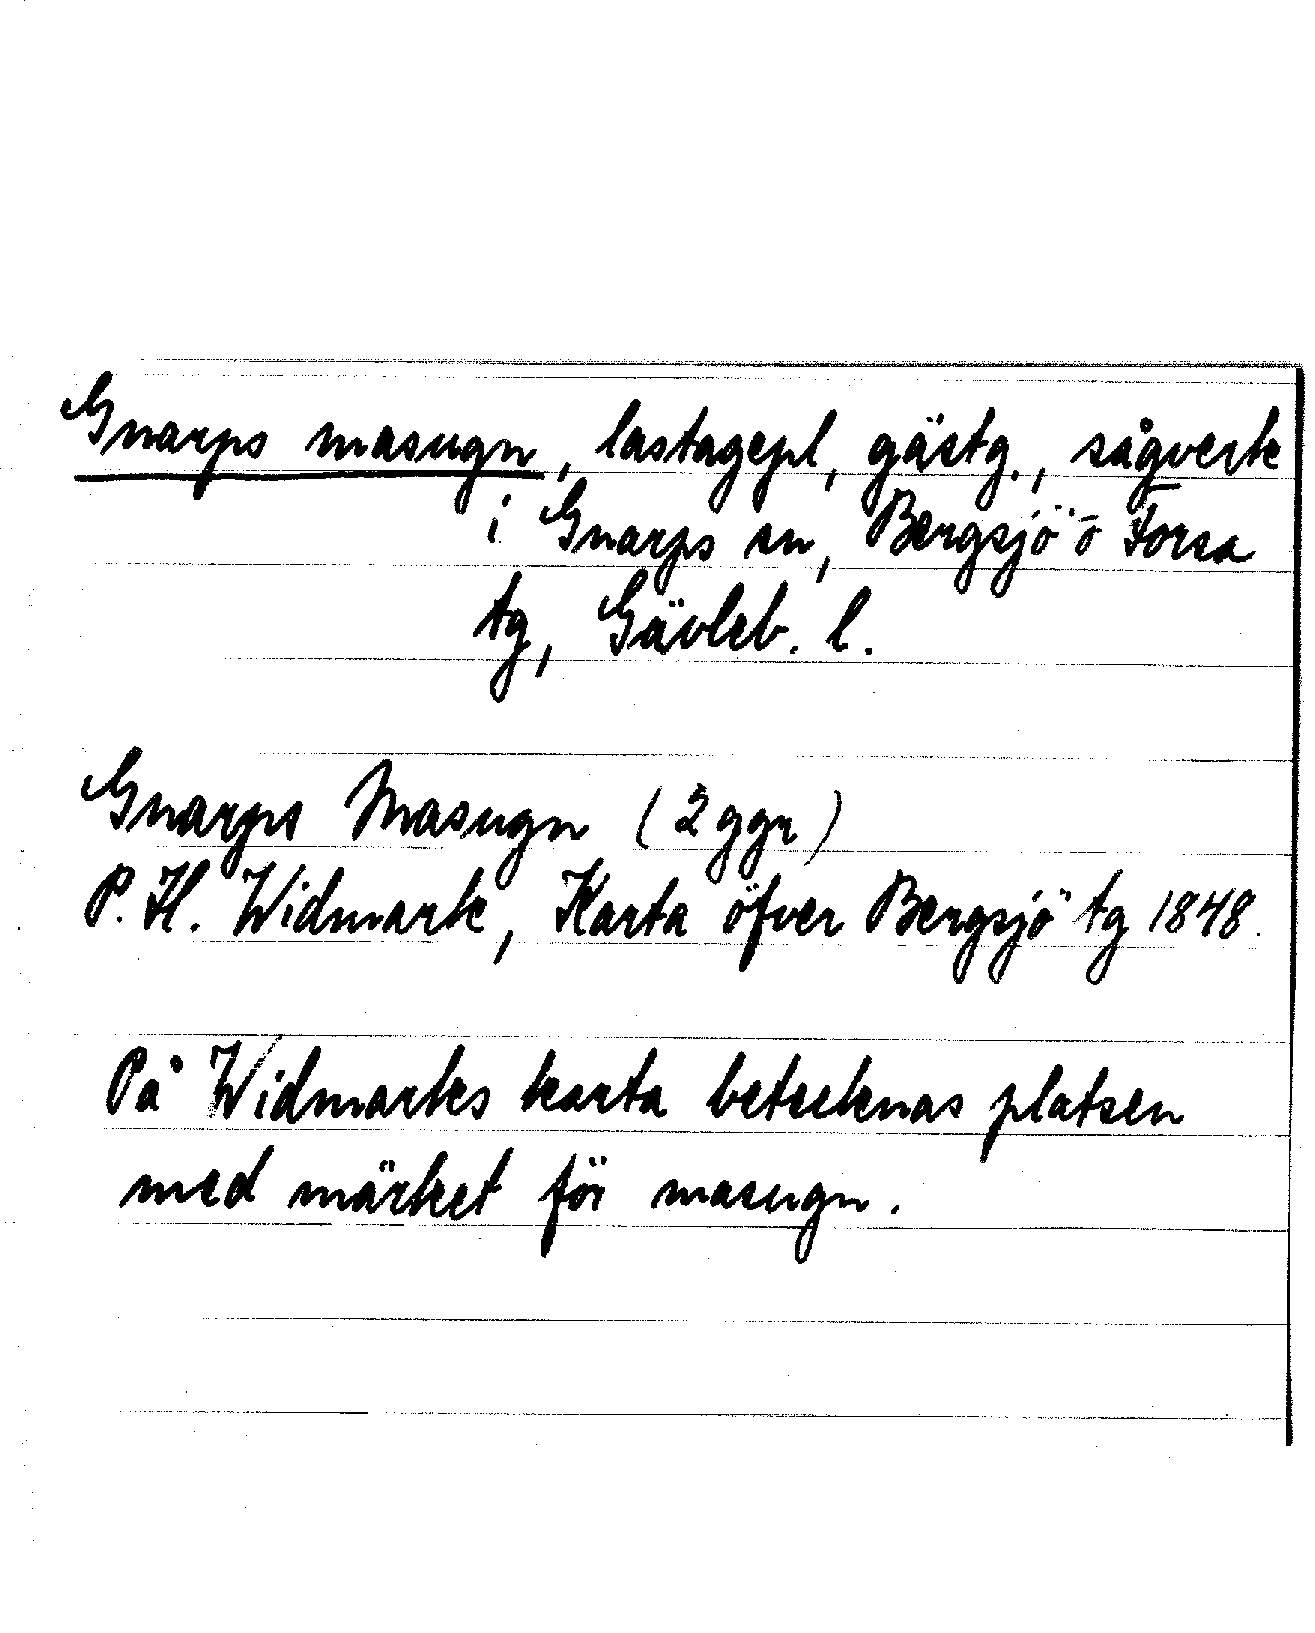 Gnarps masugn, lastagepl, gästg., sågverk
i Gnarps sn, Bergsjö o Forsa
tg, Gävleb. l.
Gnarps Masugn (2 ggr)
P. H. Widmark, Karta öfver Bergsjö tg 1848.
På Widmarks karta betecknas platsen
med märket för masugn.